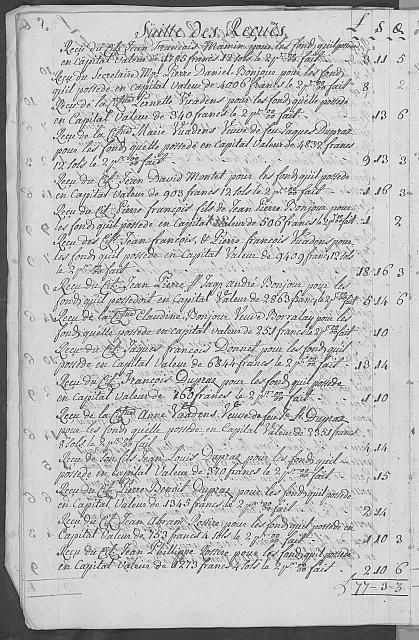 Suitte Des Reçuës f S d
Reçu du Ct Jean François Mamin pour les fond quil possede
en Capital Valeur de 1785 francs 12 sols le 2 pr 00/00 fait 3 11 5
Reçu du Secretaire Mre Pierre Daniel Bonjour pour les fond
quil possede en Capital Valeur de 4006 francs le 2 pr 00/00 fait 8 2
Reçu de la Pernette Viradens pour les fond quelle possede
en Capital Valeur de 340 francs le 2 pr 00/00 fait 13 6
Reçu de la Marie Viradens Veuve de feu Jaques Dupraz
pour les fond quelle possede en Capital Valeur de 4832 francs
12 sols le 2 pr 00/00 fait 9 13 3
Reçu du Ct Jean David Montet pour les fond quil possede
en Capital Valeur de 903 francs 12 sols le 2 pr 00/00 fait 1 16 3
Reçu du Ct Pierre françois fils de Jean Pierre Bonjour pour
les fond quil possede en Capital Valeur de 506 francs le 2 pr 00/00 fait 1 2
Reçu des Ct Jean françois, & Pierre françois Viradens pour
les fond quil possede en Capital Valeur de 9409 francs 12 sols
le 2 pr 00/00 fait 18 16 3
Reçu du Ct Jean Pierre ff Jaqs André Bonjour pour les
fond quil possede en Capital Valeur de 2863 francs le 2 pr 00/00 fait 5 14 6
Reçu de la Claudine Bonjour Veuve Borralay pour les
fond quelle possede en Capital Valeur de 251 francs le 2 pr 00/00 fait 10
Reçu du Ct Jaques François Donnet pour les fond quil
possede en Capital Valeur de 6844 francs le 2 pr 00/00 fait 13 14
Reçu du Ct François Dupraz pour les fond quil possede
en Capital Valeur de 760 francs le 2 pr 00/00 fait 1 10
Reçu de la Anne Viradens Veuve de feu Dupraz
pour les fond quelle possede en Capital Valeur de 2351 francs
8 sols le 2 pr 00/00 fait 4 14
Reçu de Son fils Jean Louis Dupraz pour les fond quil
possede en Capital Valeur de 370 francs le 2 pr 00/00 fait 15
Reçu du Ct Pierre Benoit Dupraz pour les fond quil possede
en Capital Valeur de 1345 francs le 2 pr 00/00 fait 2 14
Reçu du Ct Jean Abram pour les fond quil possede en
Capital Valeur de 753 francs 4 sols le 2 pr 00/00 fait 1 10 3
Reçu du Ct Jean Philippe pour les fond quil possede
en Capital Valeur de 1273 francs 4 sols le 2 pr 00/00 fait 2 10 6
77-3-3